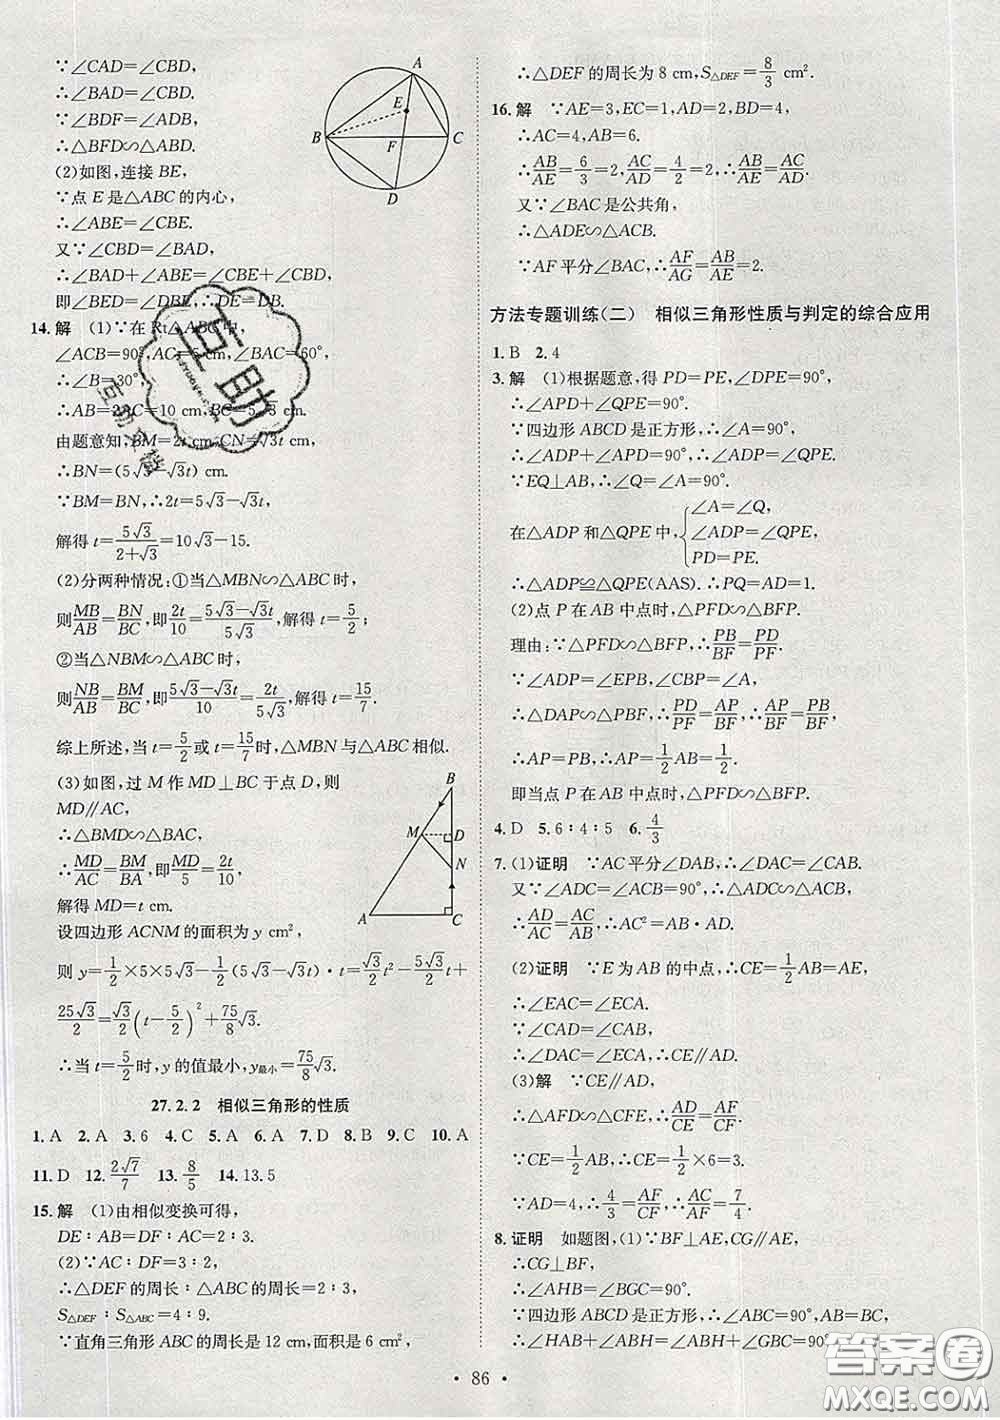 ∵∠CAD=∠CBD,
∴∠BAD=∠CBD.
∵∠BDF=∠ADB,
∴△BFD∽△ABD.
(2)如图,连接 BE,
∵点 E 是△ABC 的内心,
∴∠ABE=∠CBE.
又∵∠CBD=∠BAD,
∴∠BAD+∠ABE=∠CBE+∠CBD,
即∠BED=∠DBE,∴DE=DB.
A
E
B
F
C
D
14. 解 (1)∵在 Rt△ABC 中,
∠ACB=90°,AC=5,∠A=
∴∠B=30°,
∴AB=2AC=10 cm,BC=5√3 cm.
由题意知,BM=2t cm,CN=√3t cm,
∴BN=(5√3-√3t) cm.
∵BM=BN,∴2t=5√3-√3t,
解得 t=5√3/(2+√3)=10√3-15.
(2)分两种情况:①当△MBN∽△ABC 时,
则MB/AB=BN/BC,即2t/10=(5√3-√3t)/5√3,解得 t=5/2;
②当△NBM∽△ABC 时,
则NB/AB=BM/BC,即(5√3-√3t)/10=2t/5√3,解得 t=15/7.
综上所述,当 t=5/2或 t=15/7时,△MBN 与△ABC 相似.
(3)如图,过 M 作 MD⊥BC 于点 D,则
MD∥AC,
∴△BMD∽△BAC,
∴MD/AC=BM/BA,即MD/5=2t/10,
解得 MD=t cm.
B
M
D
N
A
C
设四边形 ACNM 的面积为 y cm²,
则 y=1/2×5×5√3-1/2(5√3-√3t)·t=√3/2t²-5√3/2t+
25√3/2=√3/2(t-5/2)²+75/8√3.
∴当 t=5/2时,y 的值最小,y最小=75/8√3.
27.2.2 相似三角形的性质
1. A 2. A 3. 6 4. C 5. A 6. A 7. D 8. B 9. C 10. A
11. D 12. 2√7/7 13. 8/5 14. 13.5
15. 解 (1)由相似变换可得,
DE∶AB=DF∶AC=2∶3.
(2)∵AC∶DF=3∶2,
∴△DEF 的周长∶△ABC 的周长=2∶3,
S△DEF∶S△ABC=4∶9.
∵直角三角形 ABC 的周长是 12 cm,面积是 6 cm²,
∴△DEF 的周长为 8 cm,S△DEF=8/3 cm².
16. 解 ∵AE=3,EC=1,AD=2,BD=4,
∴AC=4,AB=6.
∴AB/AE=6/3=2,AC/AD=4/2=2,∴AB/AE=AC/AD.
又∵∠BAC 是公共角,
∴△ADE∽△ACB.
∵AF 平分∠BAC,∴AF/AG=AB/AE=2.
方法专题训练(二) 相似三角形性质与判定的综合应用
1. B 2. 4
3. 解 (1)根据题意,得 PD=PE,∠DPE=90°,
∴∠APD+∠QPE=90°.
∵四边形 ABCD 是正方形,∴∠A=90°,
∴∠ADP+∠APD=90°,∴∠ADP=∠QPE.
∵EQ⊥AB,∴∠Q=∠A=90°.
在△ADP 和△QPE 中,{∠A=∠Q,
∠ADP=∠QPE,
PD=PE.
∴△ADP≌△QPE(AAS).∴PQ=AD=1.
(2)点 P 在 AB 中点时,△PFD∽△BFP.
理由:∵△PFD∽△BFP,∴PB/BF=PD/PF.
∵∠ADP=∠EPB,∠CBP=∠A,
∴△DAP∽△PBF,∴PD/PF=AP/BF,∴AP/BF=PB/BF,
∴AP=PB,∴AP=1/2AB=1/2.
即当点 P 在 AB 中点时,△PFD∽△BFP.
4. D 5. 6∶4∶5 6. 4/3
7. (1)证明 ∵AC 平分∠DAB,∴∠DAC=∠CAB.
又∵∠ADC=∠ACB=90°,∴△ADC∽△ACB,
∴AD/AC=AC/AB,∴AC²=AB·AD.
(2)证明 ∵E 为 AB 的中点,∴CE=1/2AB=AE,
∴∠EAC=∠ECA.
∵∠CAD=∠CAB,
∴∠DAC=∠ECA,∴CE∥AD.
(3)解 ∵CE∥AD,
∴△AFD∽△CFE,∴AD/CE=AF/CF.
∵CE=1/2AB,∴CE=1/2×6=3.
∵AD=4,∴4/3=AF/CF,∴AC/AF=7/4.
8. 证明 如题图,(1)∵BF⊥AE,CG∥AE,
∴CG⊥BF,
∴∠AHB=∠BGC=90°.
∵四边形 ABCD 是正方形,∴∠ABC=90°,AB=BC,
∴∠HAB+∠ABH=∠ABH+∠GBC=90°,
• 86 •
互助
互助文铺
答案圈
MXQE.COM